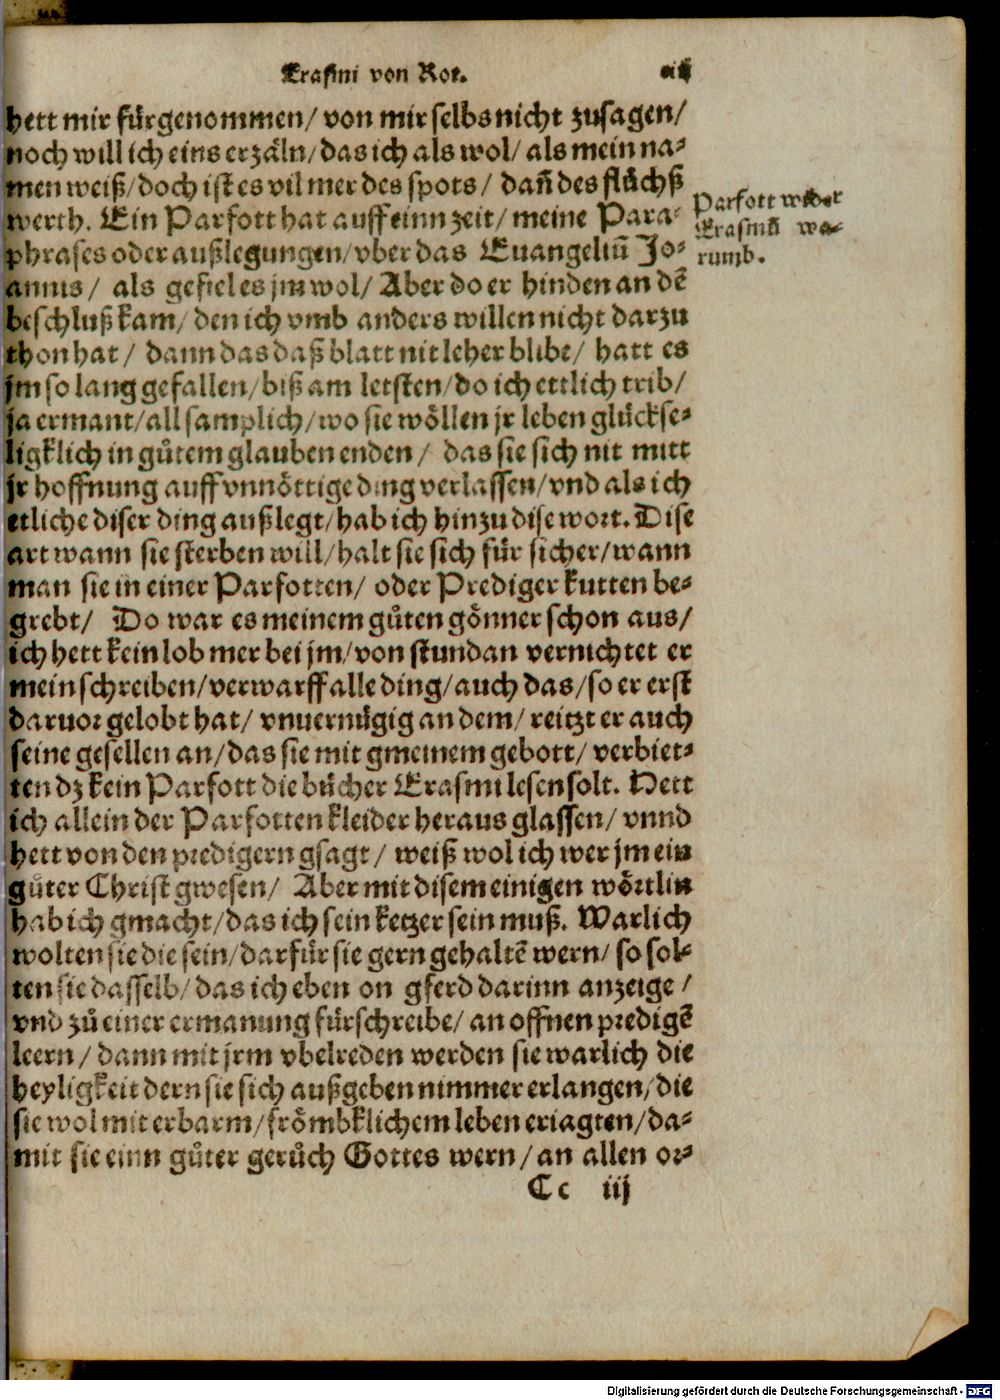 Erasmi von Rot.
hett mir fürgenommen/ von mir selbs nicht zusagen/
noch will ich eins erzäln/ das ich als wol/ als mein na⸗
men weiß/ doch ist es vil mer des spots/ dañ des flůchß
werth. Ein Parfott hat auff einn zeit/ meine Para⸗
phrases oder außlegungen/ vber das Euangeliũ Jo⸗
annis/ als gefiel es jm wol/ Aber do er hinden an dẽ
beschluß kam/ den ich vmb anders willen nicht darzu
thon hat/ dann das daß blatt nit leher blibe/ hatt es
jm so lang gefallen/ biß am letsten/ do ich ettlich trib/
ja ermant/ all samplich/ wo sie wöllen jr leben glückse⸗
ligklich in gůtem glauben enden/ das sie sich nit mitt
jr hoffnung auff vnnöttige ding verlassen/ vnd als ich
etliche diser ding außlegt/ hab ich hinzu dise wort. Dise
art wann sie sterben will/ halt sie sich für sicher/ wann
man sie in einer Parfotten/ oder Prediger kutten be⸗
grebt/ Do war es meinem gůten gönner schon aus/
ich hett kein lob mer bei jm/ von stundan vernichtet er
mein schreiben/ verwarff alle ding/ auch das/ so er erst
daruor gelobt hat/ vnuernügig an dem/ reitzt er auch
seine gesellen an/ das sie mit gmeinem gebott/ verbiet⸗
ten dz kein Parfott die bücher Erasmi lesen solt. Hett
ich allein der Parfotten kleider heraus glassen/ vnnd
hett von den predigern gsagt/ weiß wol ich wer jm ein
gůter Christ gwesen/ Aber mit disem einigen wörtlin
hab ich gmacht/ das ich sein ketzer sein muß. Warlich
wolten sie die sein/ darfür sie gern gehaltẽ wern/ so sol⸗
ten sie dasselb/ das ich eben on gferd darinn anzeige/
vnd zů einer ermanung fürschreibe/ an offnen predigẽ
leern/ dann mit jrm vbelreden werden sie warlich die
heyligkeit dern sie sich außgeben nimmer erlangen/ die
sie wol mit erbarm/ frömbklichem leben eriagten/ da⸗
mit sie einn gůter gerůch Gottes wern/ an allen or⸗
Cc iij
Parfott wider
Erasmũ wa⸗
rumb.
Digitalisierung gefördert durch die Deutsche Forschungsgemeinschaft - DFG